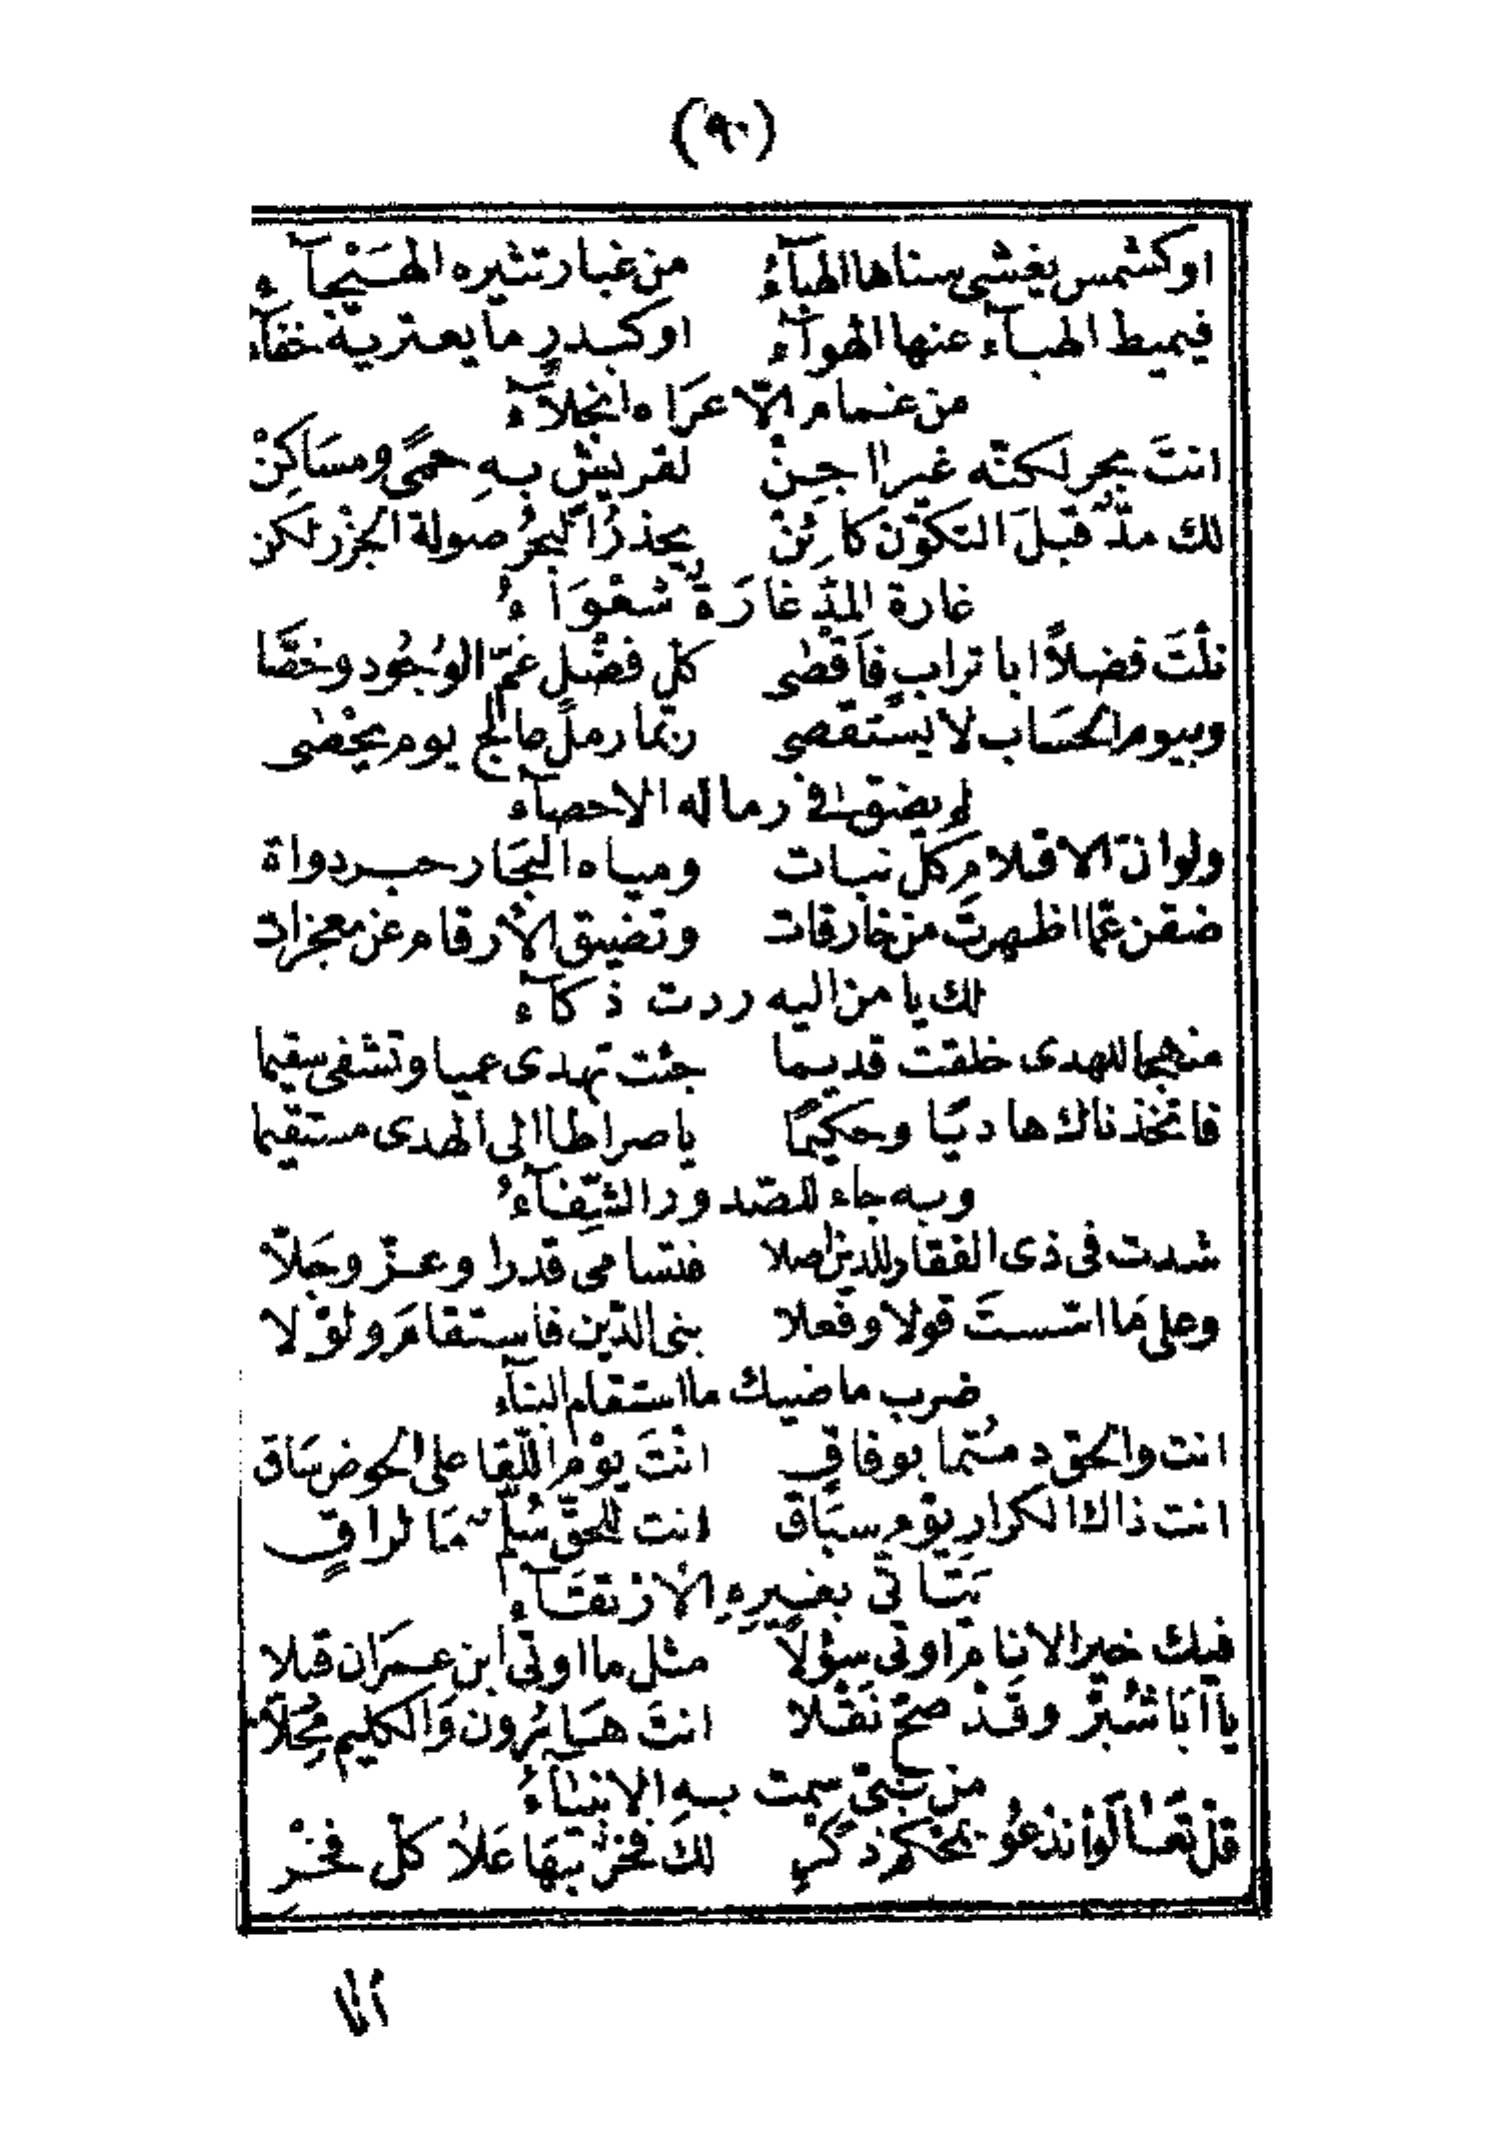 (٩٠)
اوكشمس يغشى سناها الهبآءُ من غبار تثيره الهَيْجآء
فيميط الهبآء عنها الهوآء اوكبدرٍ ما يعتريه خفآء
من غمام الّا عَرَاه انجلآء
انتَ بحر لكنّه غير اجِنْ لقريش بهِ حمًى ومسَاكِنْ
لك مدٌّ قبلَ التكوّن كَائِنْ يحذرُ البحرُ صولة الجزْر لكن
غارة المدّ غارَةٌ شعْوَاءُ
نلْتَ فضلاً ابا ترابٍ فاَقْصٰى كلّ فضْلٍ عَمّ الوُجُود وخصَّا
وبيوم الحسَاب لا يُسْتقصى ربّما رملُ عالجٍ يوم يحْصٰى
لم يضق في رماله الاحصآء
ولو انّ الاقلامِ كلّ نبات ومياه البحَار حبر دواة
ضقن عمّا اظهرتَ من خارقات وتضيق الأرقام عن معجزات
لك يا من اليه ردت ذكآء
منهجا للهدى خلقت قديما جئت تهدى عميا وتشفى سقيما
فاتخذناك هاديًا وحكيمًا يا صراطا الى الهدى مستقيما
وبه جاء للصّدور الشِّفآءُ
شدت فى ذى الفقار للدين اصلا فتسامى قدرا وعزّ وجَلاّ
وعلى مَا اسّستَ قولا وفعلا بنى الدّين فاستقامَ ولوْلا
ضرب ماضيك ما استقام البنآء
انت والحق دمتما بوفاقٍ انْتَ يوْم اللّقا على الحوض سَاق
انت ذاك الكرار يوْم سبَاق انت للحقّ سُلّمٌ مَا لراقٍ
يَتَأتّى بغيرِهِ الْارْتقَآء
فيك خير الانام اوتى سؤلاً مثل ما اوتى ابن عمَران قبلا
يا اَبَا شُبّر وقَدْ صحّ نَقْلا انتَ هَارُون وَالكليم مَحَلاّ
من نبّى سمت بهِ الانبيآءُ
قلْ تعَالَوْا نَدْعُو بمحْكم ذكْرٍ لكَ فخرٌ بهَا عَلَا كلّ فخْرٍ